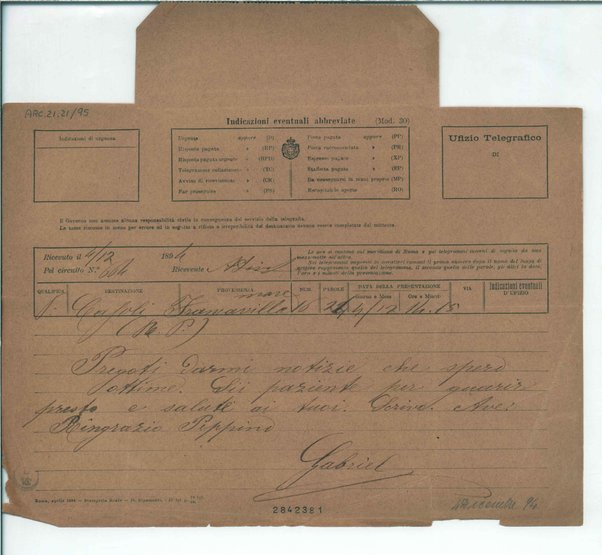 ARC.21.21/95
Indicazioni eventuali abbreviate (Mod. 30)
Indicazioni di urgenza
Urgente oppure (D)
Risposta pagata » (RP)
Risposta pagata urgente » (RPD)
Telegramma collazionato » (TC)
Avviso di ricevimento » (CR)
Far proseguire » (FS)
Posta pagata oppure (PP)
Posta raccomandata » (PR)
Espresso pagato » (XP)
Staffetta pagata » (EP)
Da consegnarsi in mani proprie » (MP)
Recapitabile aperto » (RO)
Ufizio Telegrafico
DI
Il Governo non assume alcuna responsabilità civile in conseguenza del servizio della telegrafia.
Le tasse riscosse in meno per errore od in seguito a rifiuto o irreperibilità del destinatario devono essere completate dal mittente.
Ricevuto il 4/12 1894
Pel circuito N.°
Ricevente
QUALIFICA DESTINAZIONE PROVENIENZA NUM. PAROLE DATA DELLA PRESENTAZIONE VIA Indicazioni eventuali D'UFIZIO
Giorno e Mese Ore e Minuti
Casoli Francavilla mare 10 26 4/12 14.15
(R P)
Pregoti darmi notizie che spero
ottime. Sii paziente per guarir
presto e saluta ai tuoi. Scrivi. Ave.
Ringrazio Peppino
Gabriel
2842381
4 Dicembre 94